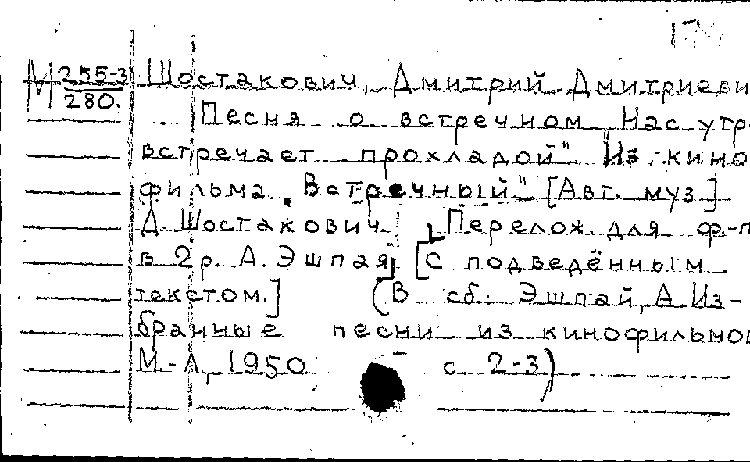 М 255-3 Шостакович, Дмитрий Дмитриеви
280. Песня о встречном „Нас утро
встречает прохладой" Из кино-
фильма „Встречный" [Авт. муз.]
Д. Шостакович. Перелож. для ф-п
в 2 р. А. Эшпая, [С подведённым
текстом.] (В сб.: Эшпай, А. Из-
бранные песни из кинофильмов
М.-Л, 1950 - с 2-3)